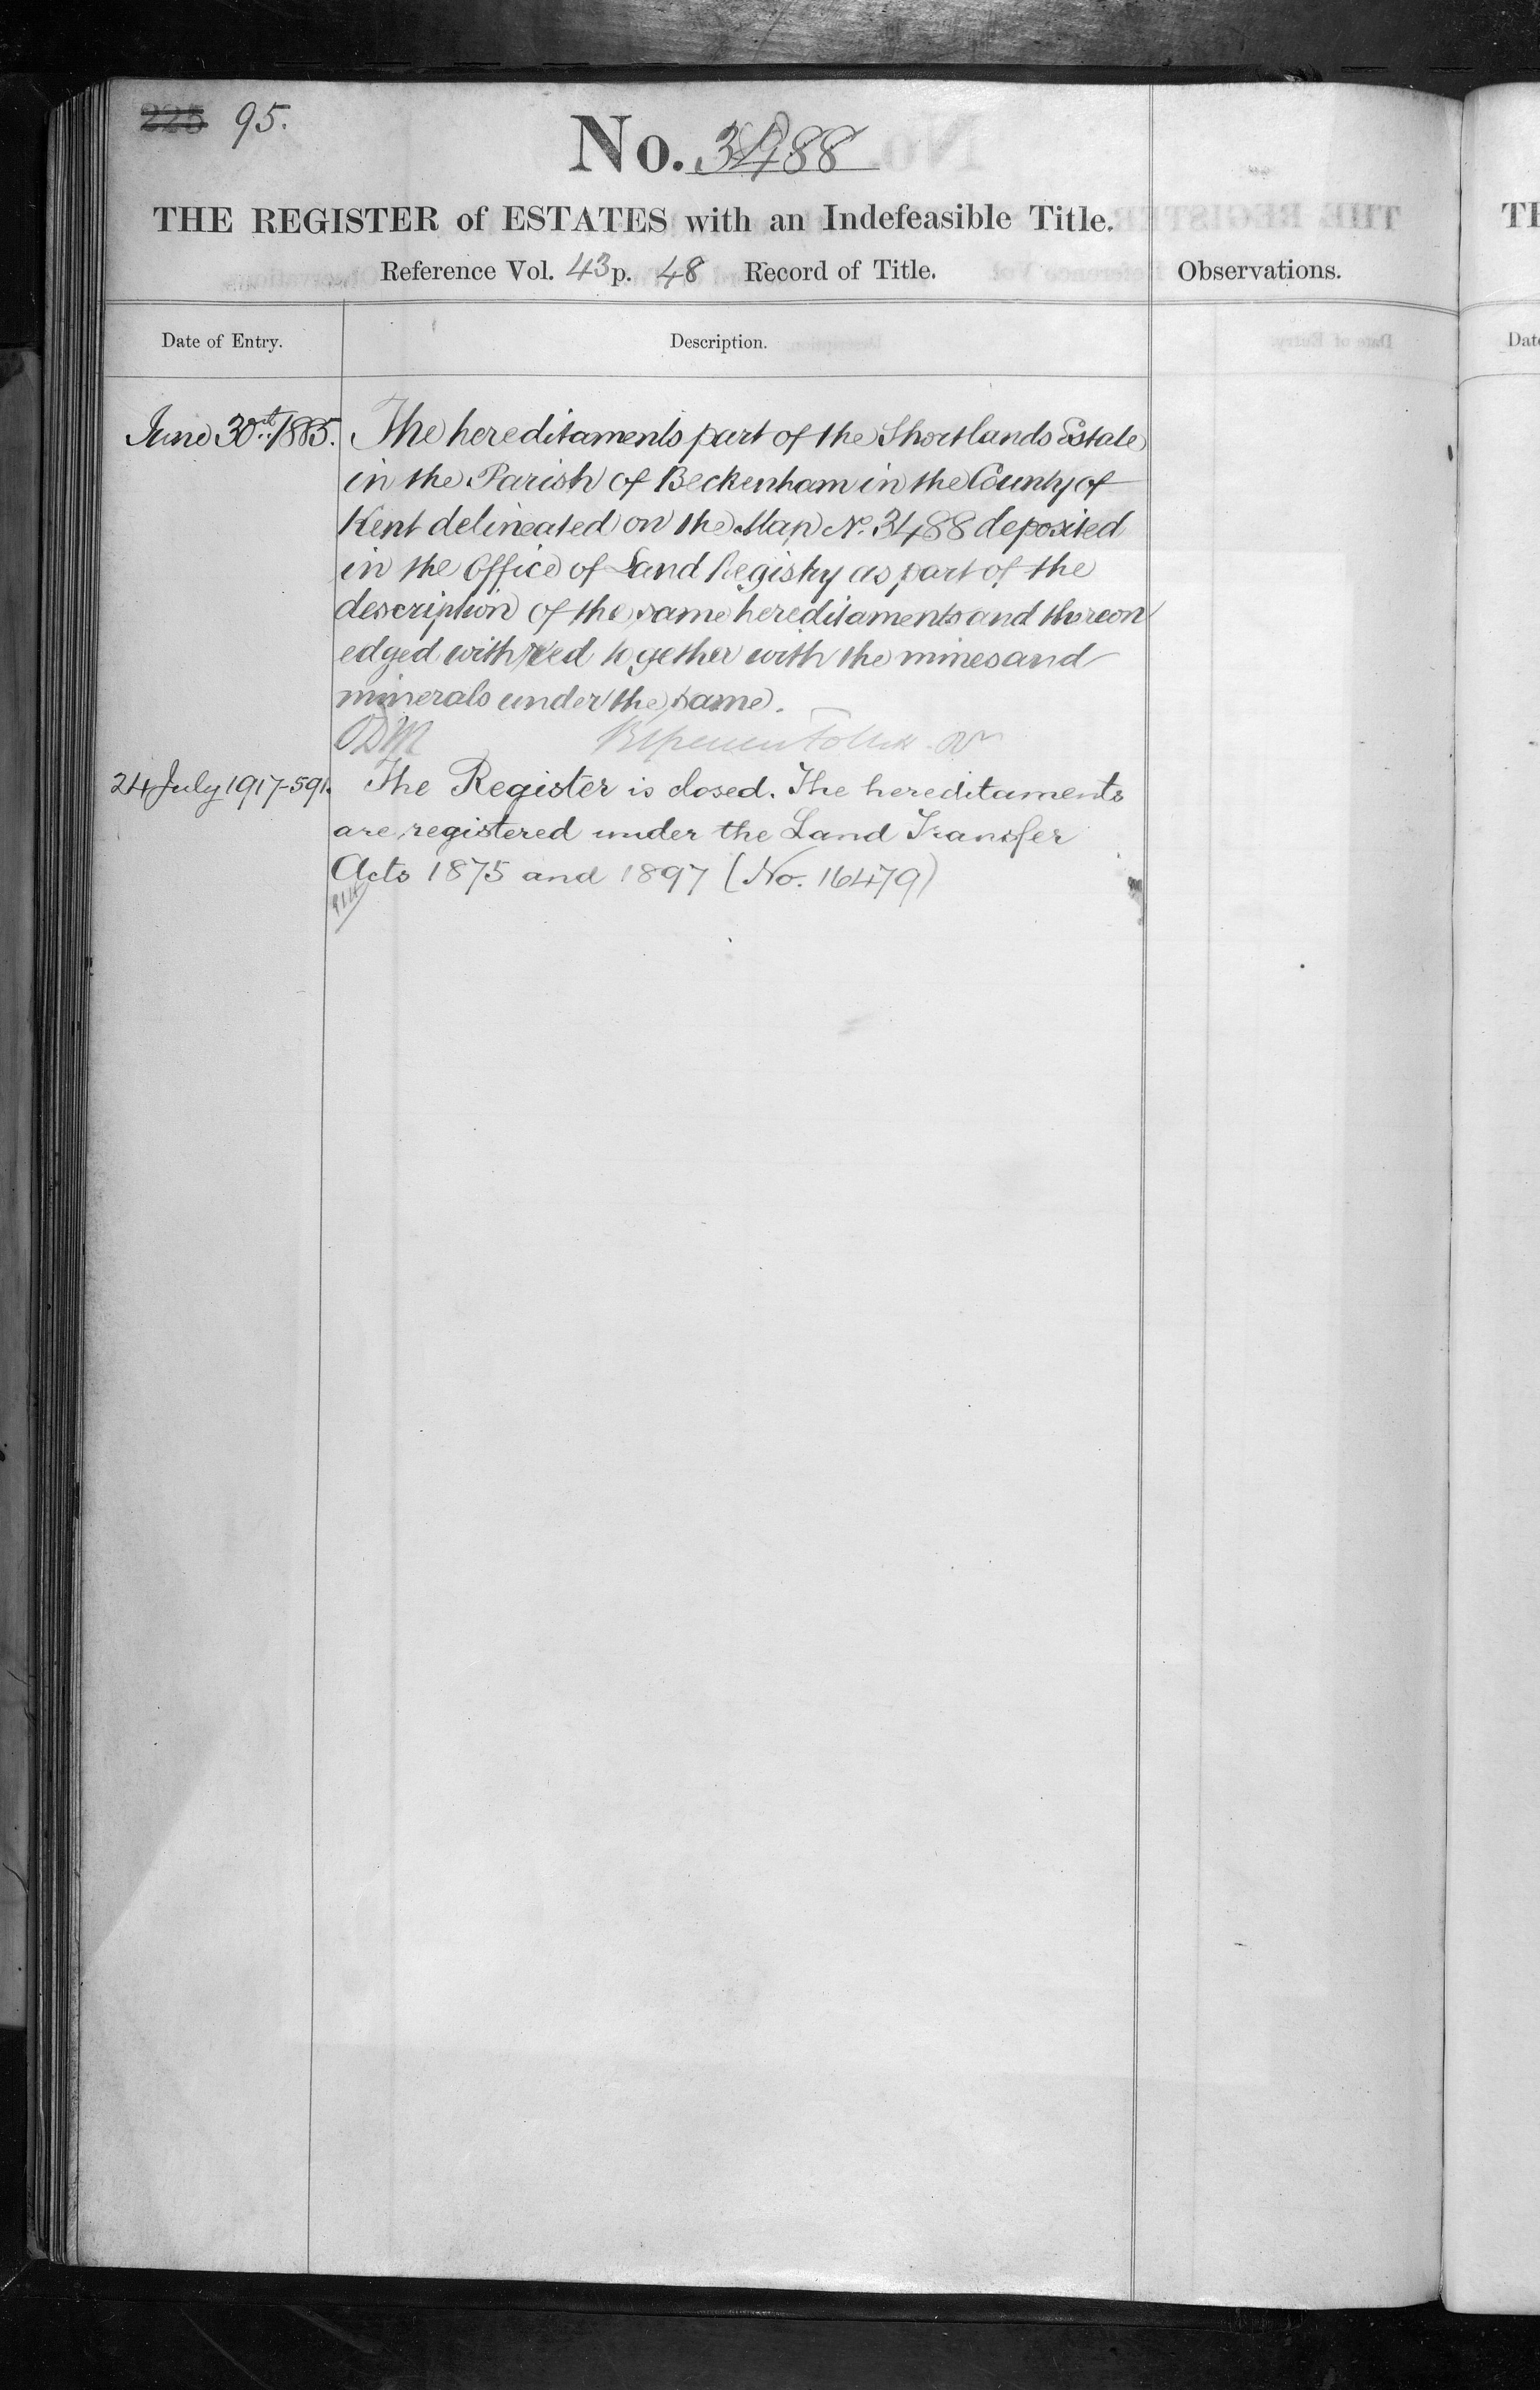 225 95.
No. 3488
THE REGISTER of ESTATES with an Indefeasible Title.
Reference Vol. 43 p. 48 Record of Title.
Observations.
Date of Entry.
Description.
June 30th 1885. The hereditaments part of the Shortlands Estate
in the Parish of Beckenham in the County of
Kent delineated on the Map No. 3488 deposited
in the Office of Land Registry as part of the
description of the same hereditaments and thereon
edged with red together with the mines and
minerals under the same.
24 July 1917-591. The Register is closed. The hereditaments
are registered under the Land Transfer
Acts 1875 and 1897 (No. 16479)